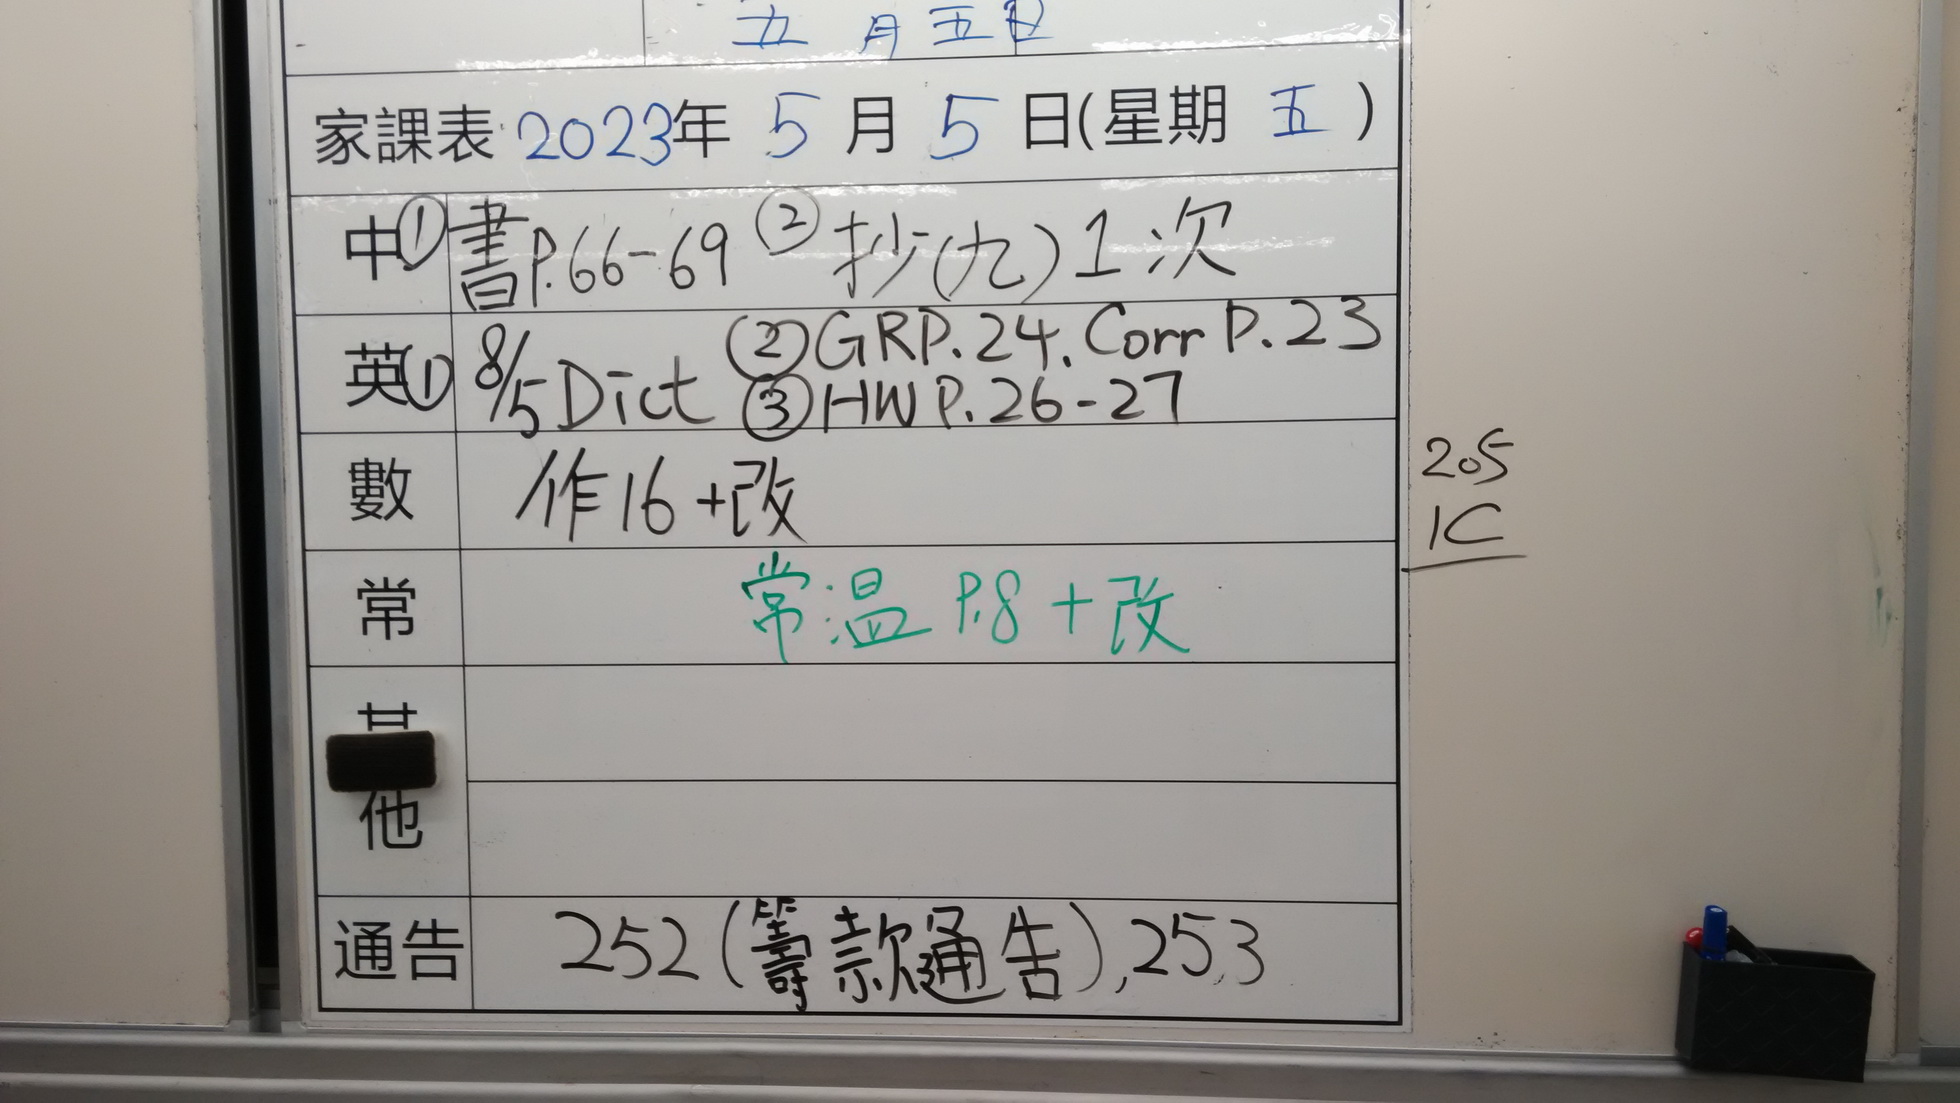 五 月 五 日
家課表 2023年 5 月 5 日(星期 五 )
中 ① 書P.66-69 ② 抄(九)1次
英 ① 8/5 Dict ② GRP.24. Corr P.23
③ HW P.26-27
數 作16+改
常 常温 P.8+改
其他
通告 252(籌款通告),253
205
1C